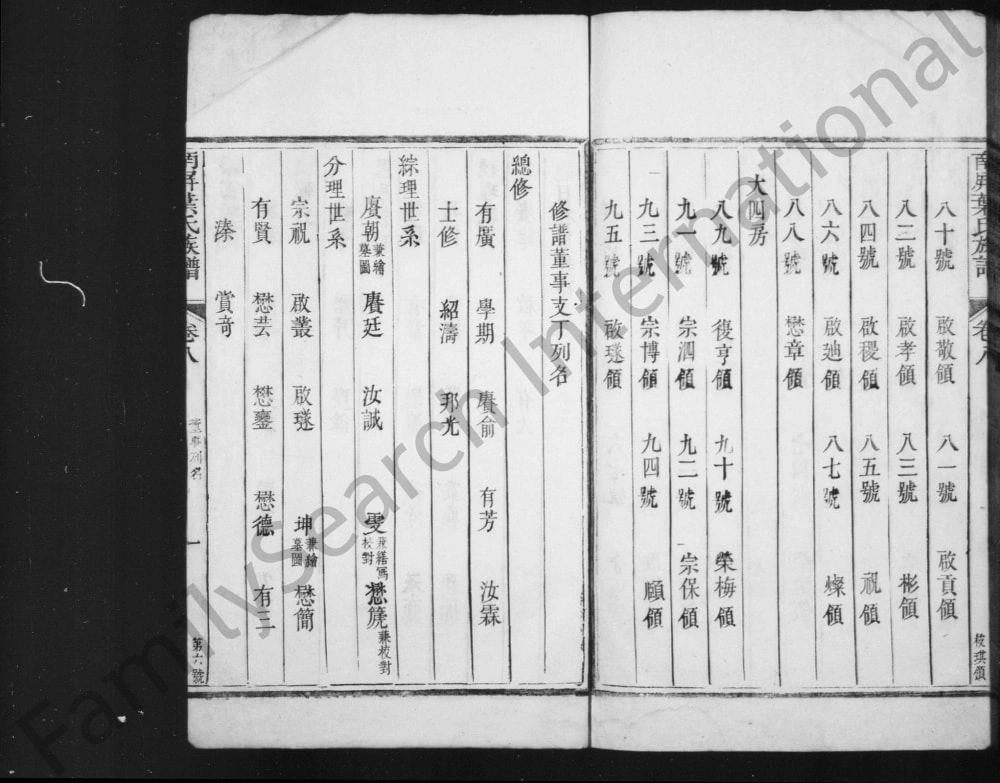 南屏葉氏族譜
卷八
校琪領
八十號 啟敬領 八一號 啟貢領
八二號 啟孝領 八三號 彬領
八四號 啟稷領 八五號 祝領
八六號 啟廸領 八七號 燦領
八八號 懋章領
大四房
八九號 復亨領 九十號 榮梅領
九一號 宗泗領 九二號 宗保領
九三號 宗博領 九四號 頤領
九五號 啟璲領
修譜董事支丁列名
總修
有廣 學期 賡俞 有芳 汝霖
士修 紹濤 邦光
綜理世系
賡朝兼繪墓圖 賡廷 汝誠 雯兼繕寫校對 懋箎兼校對
分理世系
宗祝 啟叢 啟璲 坤兼繪墓圖 懋簡
有賢 懋芸 懋鑾 懋德 有三
溱 賞奇
南屏葉氏族譜
卷八
董事列名
一
第六號
FamilySearch International